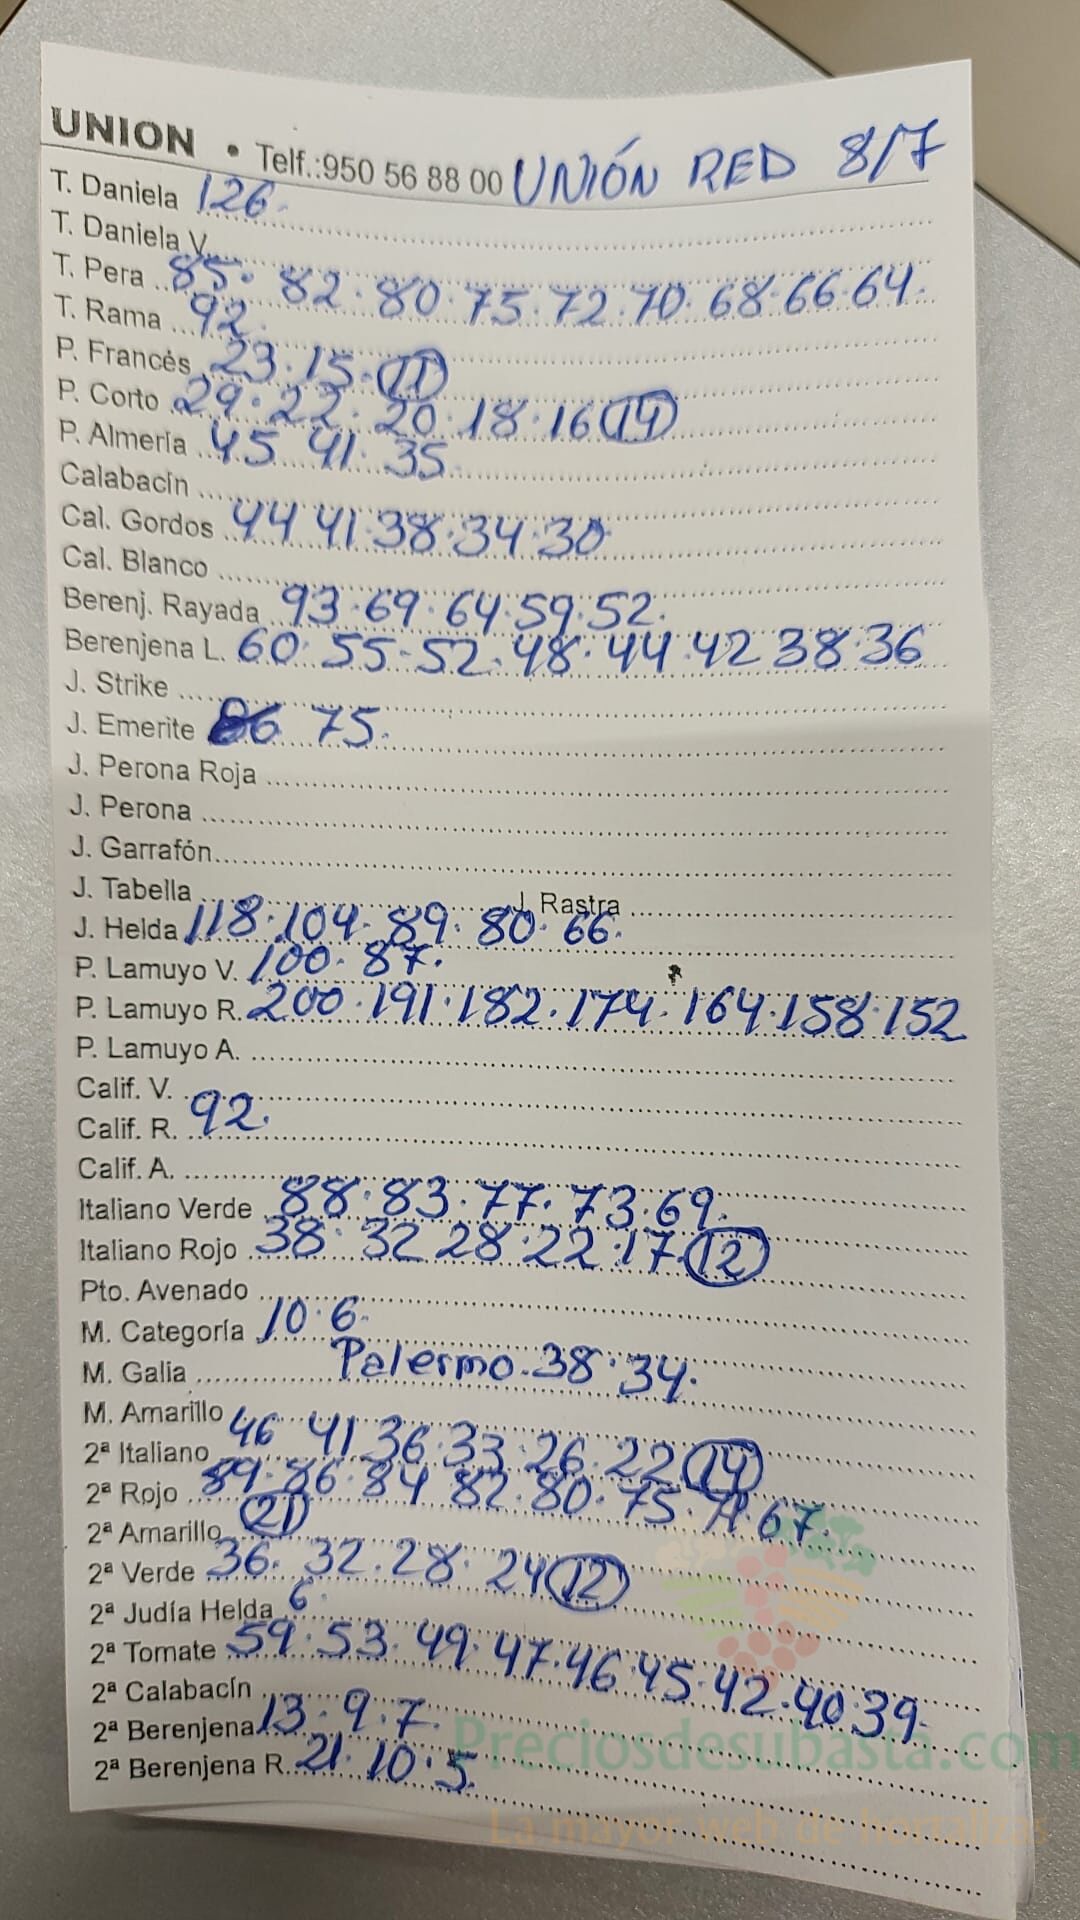 UNION • Telf.:950 56 88 00 UNIÓN RED 8/7
T. Daniela 126.
T. Daniela V.
T. Pera 85. 82. 80. 75. 72. 70. 68. 66. 64.
T. Rama 92.
P. Francés 23. 15. 11
P. Corto 29. 22. 20. 18. 16 14
P. Almería 45 41. 35
Calabacín
Cal. Gordos 44 41. 38. 34. 30
Cal. Blanco
Berenj. Rayada 93. 69. 64. 59. 52.
Berenjena L. 60. 55. 52. 48. 44. 42 38. 36
J. Strike
J. Emerite 75.
J. Perona Roja
J. Perona
J. Garrafón
J. Tabella J. Rastra
J. Helda 118. 104. 89. 80. 66.
P. Lamuyo V. 100. 87.
P. Lamuyo R. 200. 191. 182. 174. 164. 158. 152
P. Lamuyo A.
Calif. V.
Calif. R. 92.
Calif. A.
Italiano Verde 88. 83. 77. 73. 69.
Italiano Rojo 38. 32 28. 22. 17. 12
Pto. Avenado
M. Categoría 10. 6.
M. Galia Palermo. 38. 34.
M. Amarillo
2ª Italiano 46 41 36. 33. 26. 22 14
2ª Rojo 89. 86. 84 82. 80. 75. 71. 67.
2ª Amarillo 21
2ª Verde 36. 32. 28. 24 12
2ª Judía Helda 6.
2ª Tomate 59. 53. 49. 47. 46. 45. 42. 40. 39.
2ª Calabacín
2ª Berenjena 13. 9. 7.
2ª Berenjena R. 21. 10. 5.
Preciosdesubasta.com
La mayor web de hortalizas